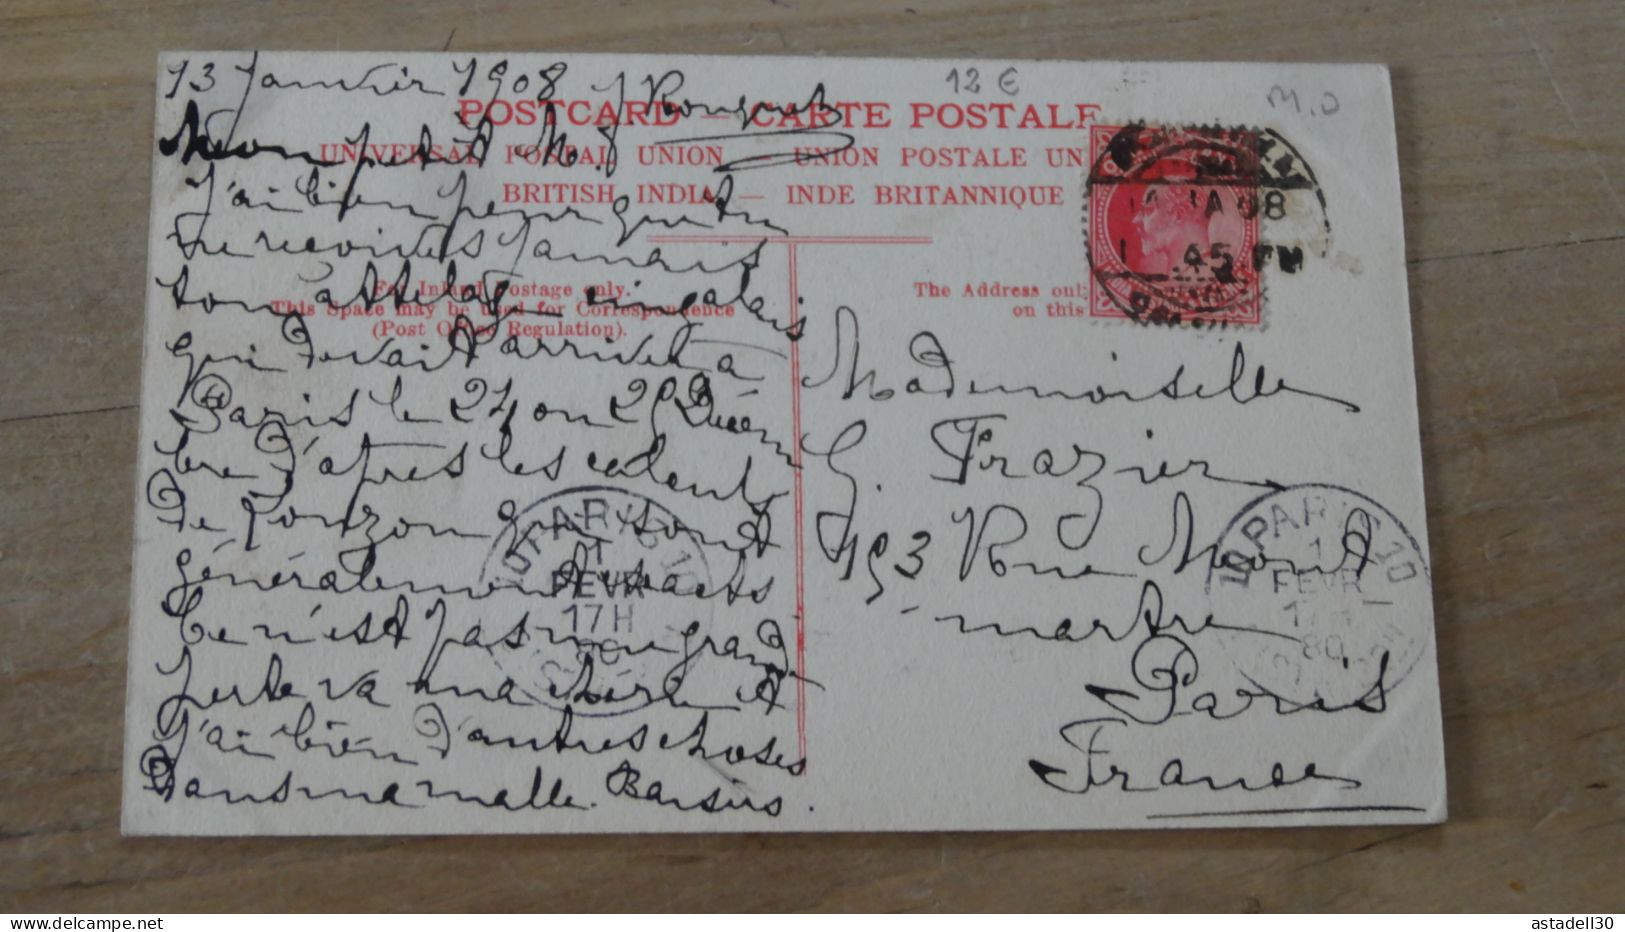 13 Janvier 1908
12 €
M.O
POSTCARD — CARTE POSTALE
UNIVERSAL POSTAL UNION — UNION POSTALE UN
BRITISH INDIA — INDE BRITANNIQUE
For Inland Postage only.
This Space may be used for Correspondence
(Post Office Regulation).
The Address onl
on this
Mon petit
J'ai bien peur que tu
ne recoives jamais
ton attelage cingalais
qui devait arriver à
Paris le 24 ou 25 Décem
bre d'après les calculs
De qui sont
généralement exacts
Ce n'est pas une grande
perte va ma chère et
j'ai bien d'autres choses
Dans ma malle. Baisers.
Mademoiselle
G. Frazier
193 Rue Mont
martre
Paris
France
JA 08
45 PM
PARIS 10
1
FEVR
17H
08
PARIS 10
1
FEVR
17H
08
astadell30